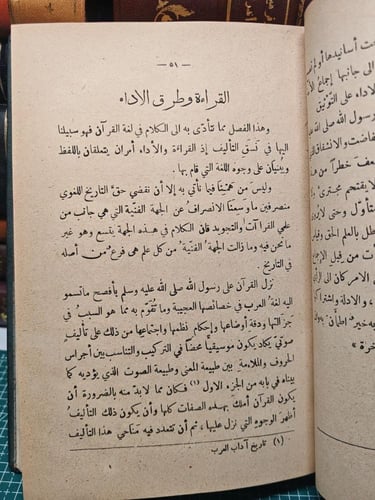 — ٥١ —
القراءة وطرق الأداء
وهذا الفصل مما نتأدى به الى الكلام في لغة القرآن فهو سبيلنا
اليها في نسق التأليف إذ القراءة والأداء أمران يتعلقان باللفظ
ويبنيان على وجوه اللغة التي قام بها.
وليس من همنا فيما نأتي به إلا أن نقضي حق التاريخ اللغوي
منصرفين ما وسعنا الانصراف عن الجهة الفنية التي هي جانب من
علمي القراءات والتجويد فان الكلام في هذه الجهة يتسع وهو غير
ما نحن فيه وما زالت الجهة الفنية من كل علم هي فرع من أصله
في التاريخ.
نزل القرآن على رسول الله صلى الله عليه وسلم بأفصح ما تسمو
اليه لغة العرب في خصائصها العجيبة وما تقوم به مما هو السبب في
جزالتها ودقة أوضاعها وإحكام نظمها واجتماعها من ذلك على تأليف
صوتي يكاد يكون موسيقيا محضا في التركيب والتناسب بين أجراس
الحروف والملاءمة بين طبيعة المعنى وطبيعة الصوت الذي يؤديه كما
بيناه في بابه من الجزء الاول (١) فكان مما لابد منه بالضرورة أن
يكون القرآن أملك بهذه الصفات كلها وأن يكون ذلك التأليف
أظهر الوجوه التي نزل عليها، ثم أن تتعدد فيه مناحي هذا التأليف
(١) تاريخ آداب العرب